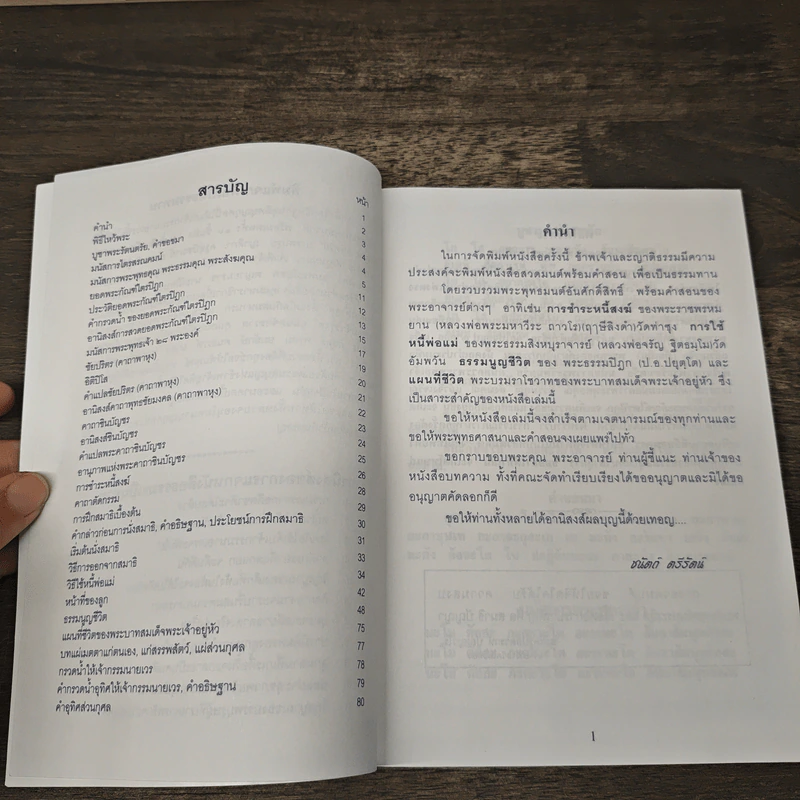 สารบัญ
หน้า
คำนำ 1
พิธีไหว้พระ 2
บูชาพระรัตนตรัย, คำขอขมา 3
มนัสการไตรสรณคมน์ 4
มนัสการพระพุทธคุณ พระธรรมคุณ พระสังฆคุณ 4
ยอดพระกัณฑ์ไตรปิฎก 5
ประวัติยอดพระกัณฑ์ไตรปิฎก
คำกรวดน้ำ ของยอดพระกัณฑ์ไตรปิฎก 11
อานิสงส์การสวดยอดพระกัณฑ์ไตรปิฎก 12
มนัสการพระพุทธเจ้า ๒๘ พระองค์
ชัยปริตร (คาถาพาหุง) 17
อิติปิโส 20
คำแปลชัยปริตร (คาถาพาหุง) 19
อานิสงส์คาถาพุทธชัยมงคล (คาถาพาหุง) 21
คาถาชินบัญชร 22
อานิสงส์ชินบัญชร 23
คำแปลพระคาถาชินบัญชร 24
อานุภาพแห่งพระคาถาชินบัญชร 25
การชำระหนี้สงฆ์ 26
คาถาตัดกรรม 28
การฝึกสมาธิเบื้องต้น 29
คำกล่าวก่อนการนั่งสมาธิ, คำอธิษฐาน, ประโยชน์การฝึกสมาธิ 30
เริ่มต้นนั่งสมาธิ 31
วิธีการออกจากสมาธิ 33
วิธีใช้หนี้พ่อแม่ 34
หน้าที่ของลูก 42
ธรรมนูญชีวิต 48
แผนที่ชีวิตของพระบาทสมเด็จพระเจ้าอยู่หัว 75
บทแผ่เมตตาแก่ตนเอง, แก่สรรพสัตว์, แผ่ส่วนกุศล 77
กรวดน้ำให้เจ้ากรรมนายเวร 78
คำกรวดน้ำอุทิศให้เจ้ากรรมนายเวร, คำอธิษฐาน 79
คำอุทิศส่วนกุศล 80
คำนำ
ในการจัดพิมพ์หนังสือครั้งนี้ ข้าพเจ้าและญาติธรรมมีความ
ประสงค์จะพิมพ์หนังสือสวดมนต์พร้อมคำสอน เพื่อเป็นธรรมทาน
โดยรวบรวมพระพุทธมนต์อันศักดิ์สิทธิ์ พร้อมคำสอนของ
พระอาจารย์ต่างๆ อาทิเช่น การชำระหนี้สงฆ์ ของพระราชพรหม
ยาน (หลวงพ่อพระมหาวีระ ถาวโร)(ฤๅษีลิงดำ)วัดท่าซุง การใช้
หนี้พ่อแม่ ของพระธรรมสิงหบุราจารย์ (หลวงพ่อจรัญ ฐิตธมฺโม)วัด
อัมพวัน ธรรมนูญชีวิต ของ พระธรรมปิฎก (ป.อ.ปยุตฺโต) และ
แผนที่ชีวิต พระบรมราโชวาทของพระบาทสมเด็จพระเจ้าอยู่หัว ซึ่ง
เป็นสาระสำคัญของหนังสือเล่มนี้
ขอให้หนังสือเล่มนี้จงสำเร็จตามเจตนารมณ์ของทุกท่านและ
ขอให้พระพุทธศาสนาและคำสอนจงเผยแพร่ไปทั่ว
ขอกราบขอบพระคุณ พระอาจารย์ ท่านผู้ชี้แนะ ท่านเจ้าของ
หนังสือบทความ ทั้งที่คณะจัดทำเรียบเรียงได้ขออนุญาตและมิได้ขอ
อนุญาตคัดลอกก็ดี
ขอให้ท่านทั้งหลายได้อานิสงส์ผลบุญนี้ด้วยเทอญ....
ชนัตถ์ ตรีรัตน์
1